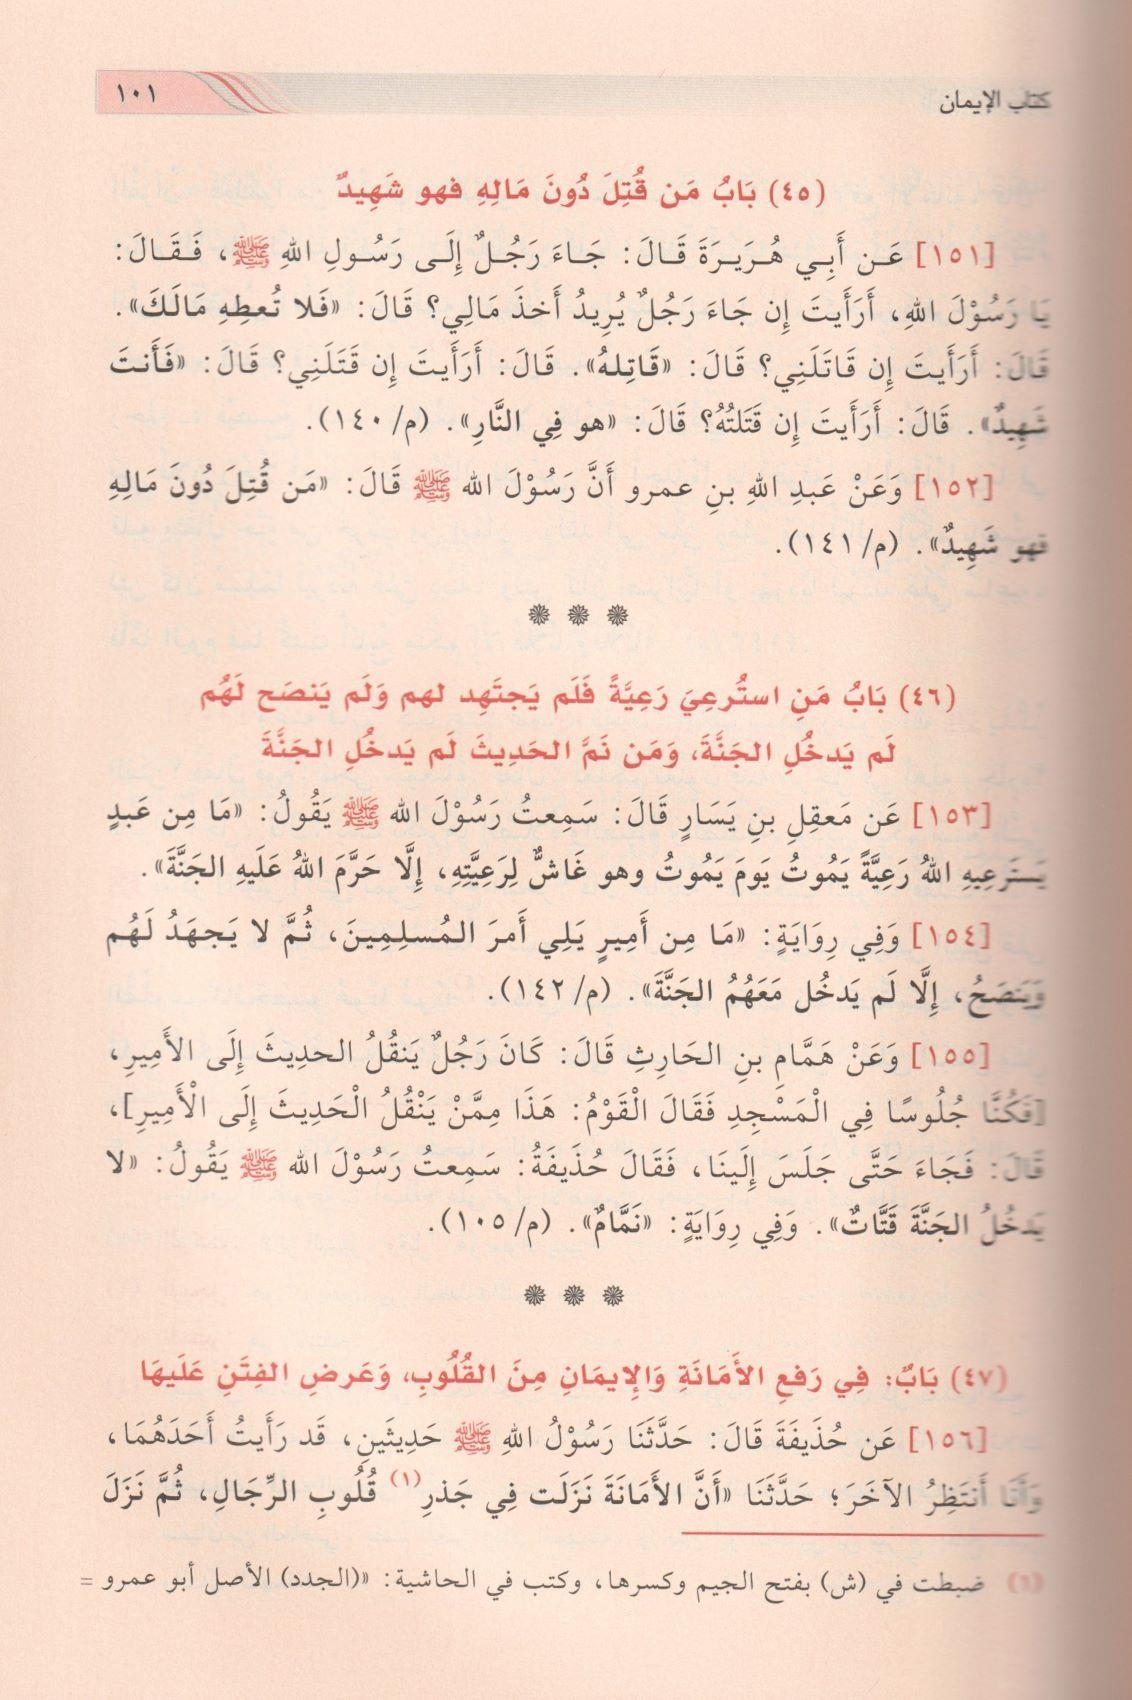 كتاب الإيمان
١٠١
(٤٥) بَابُ مَن قُتِلَ دُونَ مَالِهِ فهو شَهِيدٌ
[١٥١] عَن أَبِي هُرَيرَةَ قَالَ: جَاءَ رَجُلٌ إِلَى رَسُولِ اللهِ ﷺ، فَقَالَ:
يَا رَسُوْلَ اللهِ، أَرَأَيتَ إِن جَاءَ رَجُلٌ يُرِيدُ أَخذَ مَالِي؟ قَالَ: «فَلا تُعطِهِ مَالَكَ».
قَالَ: أَرَأَيتَ إِن قَاتَلَنِي؟ قَالَ: «قَاتِلهُ». قَالَ: أَرَأَيتَ إِن قَتَلَنِي؟ قَالَ: «فَأَنتَ
شَهِيدٌ». قَالَ: أَرَأَيتَ إِن قَتَلتُهُ؟ قَالَ: «هو فِي النَّارِ». (م/١٤٠).
[١٥٢] وَعَنْ عَبدِ اللهِ بنِ عمرو أَنَّ رَسُوْلَ الله ﷺ قَالَ: «مَن قُتِلَ دُونَ مَالِهِ
فهو شَهِيدٌ». (م/١٤١).
(٤٦) بَابُ مَنِ استُرعِيَ رَعِيَّةً فَلَم يَجتَهِد لهم وَلَم يَنصَح لَهُم
لَم يَدخُلِ الجَنَّةَ، وَمَن نَمَّ الحَدِيثَ لَم يَدخُلِ الجَنَّةَ
[١٥٣] عَن مَعقِلِ بنِ يَسَارٍ قَالَ: سَمِعتُ رَسُوْلَ الله ﷺ يَقُولُ: «مَا مِن عَبدٍ
يَستَرعِيهِ اللهُ رَعِيَّةً يَمُوتُ يَومَ يَمُوتُ وهو غَاشٌّ لِرَعِيَّتِهِ، إِلَّا حَرَّمَ اللهُ عَلَيهِ الجَنَّةَ».
[١٥٤] وَفِي رِوَايَةٍ: «مَا مِن أَمِيرٍ يَلِي أَمرَ المُسلِمِينَ، ثُمَّ لا يَجهَدُ لَهُم
وَيَنصَحُ، إِلَّا لَم يَدخُل مَعَهُمُ الجَنَّةَ». (م/١٤٢).
[١٥٥] وَعَنْ هَمَّامِ بنِ الحَارِثِ قَالَ: كَانَ رَجُلٌ يَنقُلُ الحدِيثَ إِلَى الأَمِيرِ،
[فَكُنَّا جُلُوسًا فِي الْمَسْجِدِ فَقَالَ الْقَوْمُ: هَذَا مِمَّنْ يَنْقُلُ الْحَدِيثَ إِلَى الْأَمِيرِ]،
قَالَ: فَجَاءَ حَتَّى جَلَسَ إِلَينَا، فَقَالَ حُذَيفَةُ: سَمِعتُ رَسُوْلَ الله ﷺ يَقُولُ: «لا
يَدخُلُ الجَنَّةَ قَتَّاتٌ». وَفِي رِوَايَةٍ: «نَمَّامٌ». (م/١٠٥).
(٤٧) بَابٌ: فِي رَفعِ الأَمَانَةِ وَالإِيمَانِ مِنَ القُلُوبِ، وَعَرضِ الفِتَنِ عَلَيهَا
[١٥٦] عَن حُذَيفَةَ قَالَ: حَدَّثَنَا رَسُوْلُ اللهِ ﷺ حَدِيثَينِ، قَد رَأَيتُ أَحَدَهُمَا،
وَأَنَا أَنتَظِرُ الآخَرَ؛ حَدَّثَنَا «أَنَّ الأَمَانَةَ نَزَلَت فِي جَذرِ(١) قُلُوبِ الرِّجَالِ، ثُمَّ نَزَلَ
(١) ضبطت في (ش) بفتح الجيم وكسرها، وكتب في الحاشية: «(الجدد) الأصل أبو عمرو =